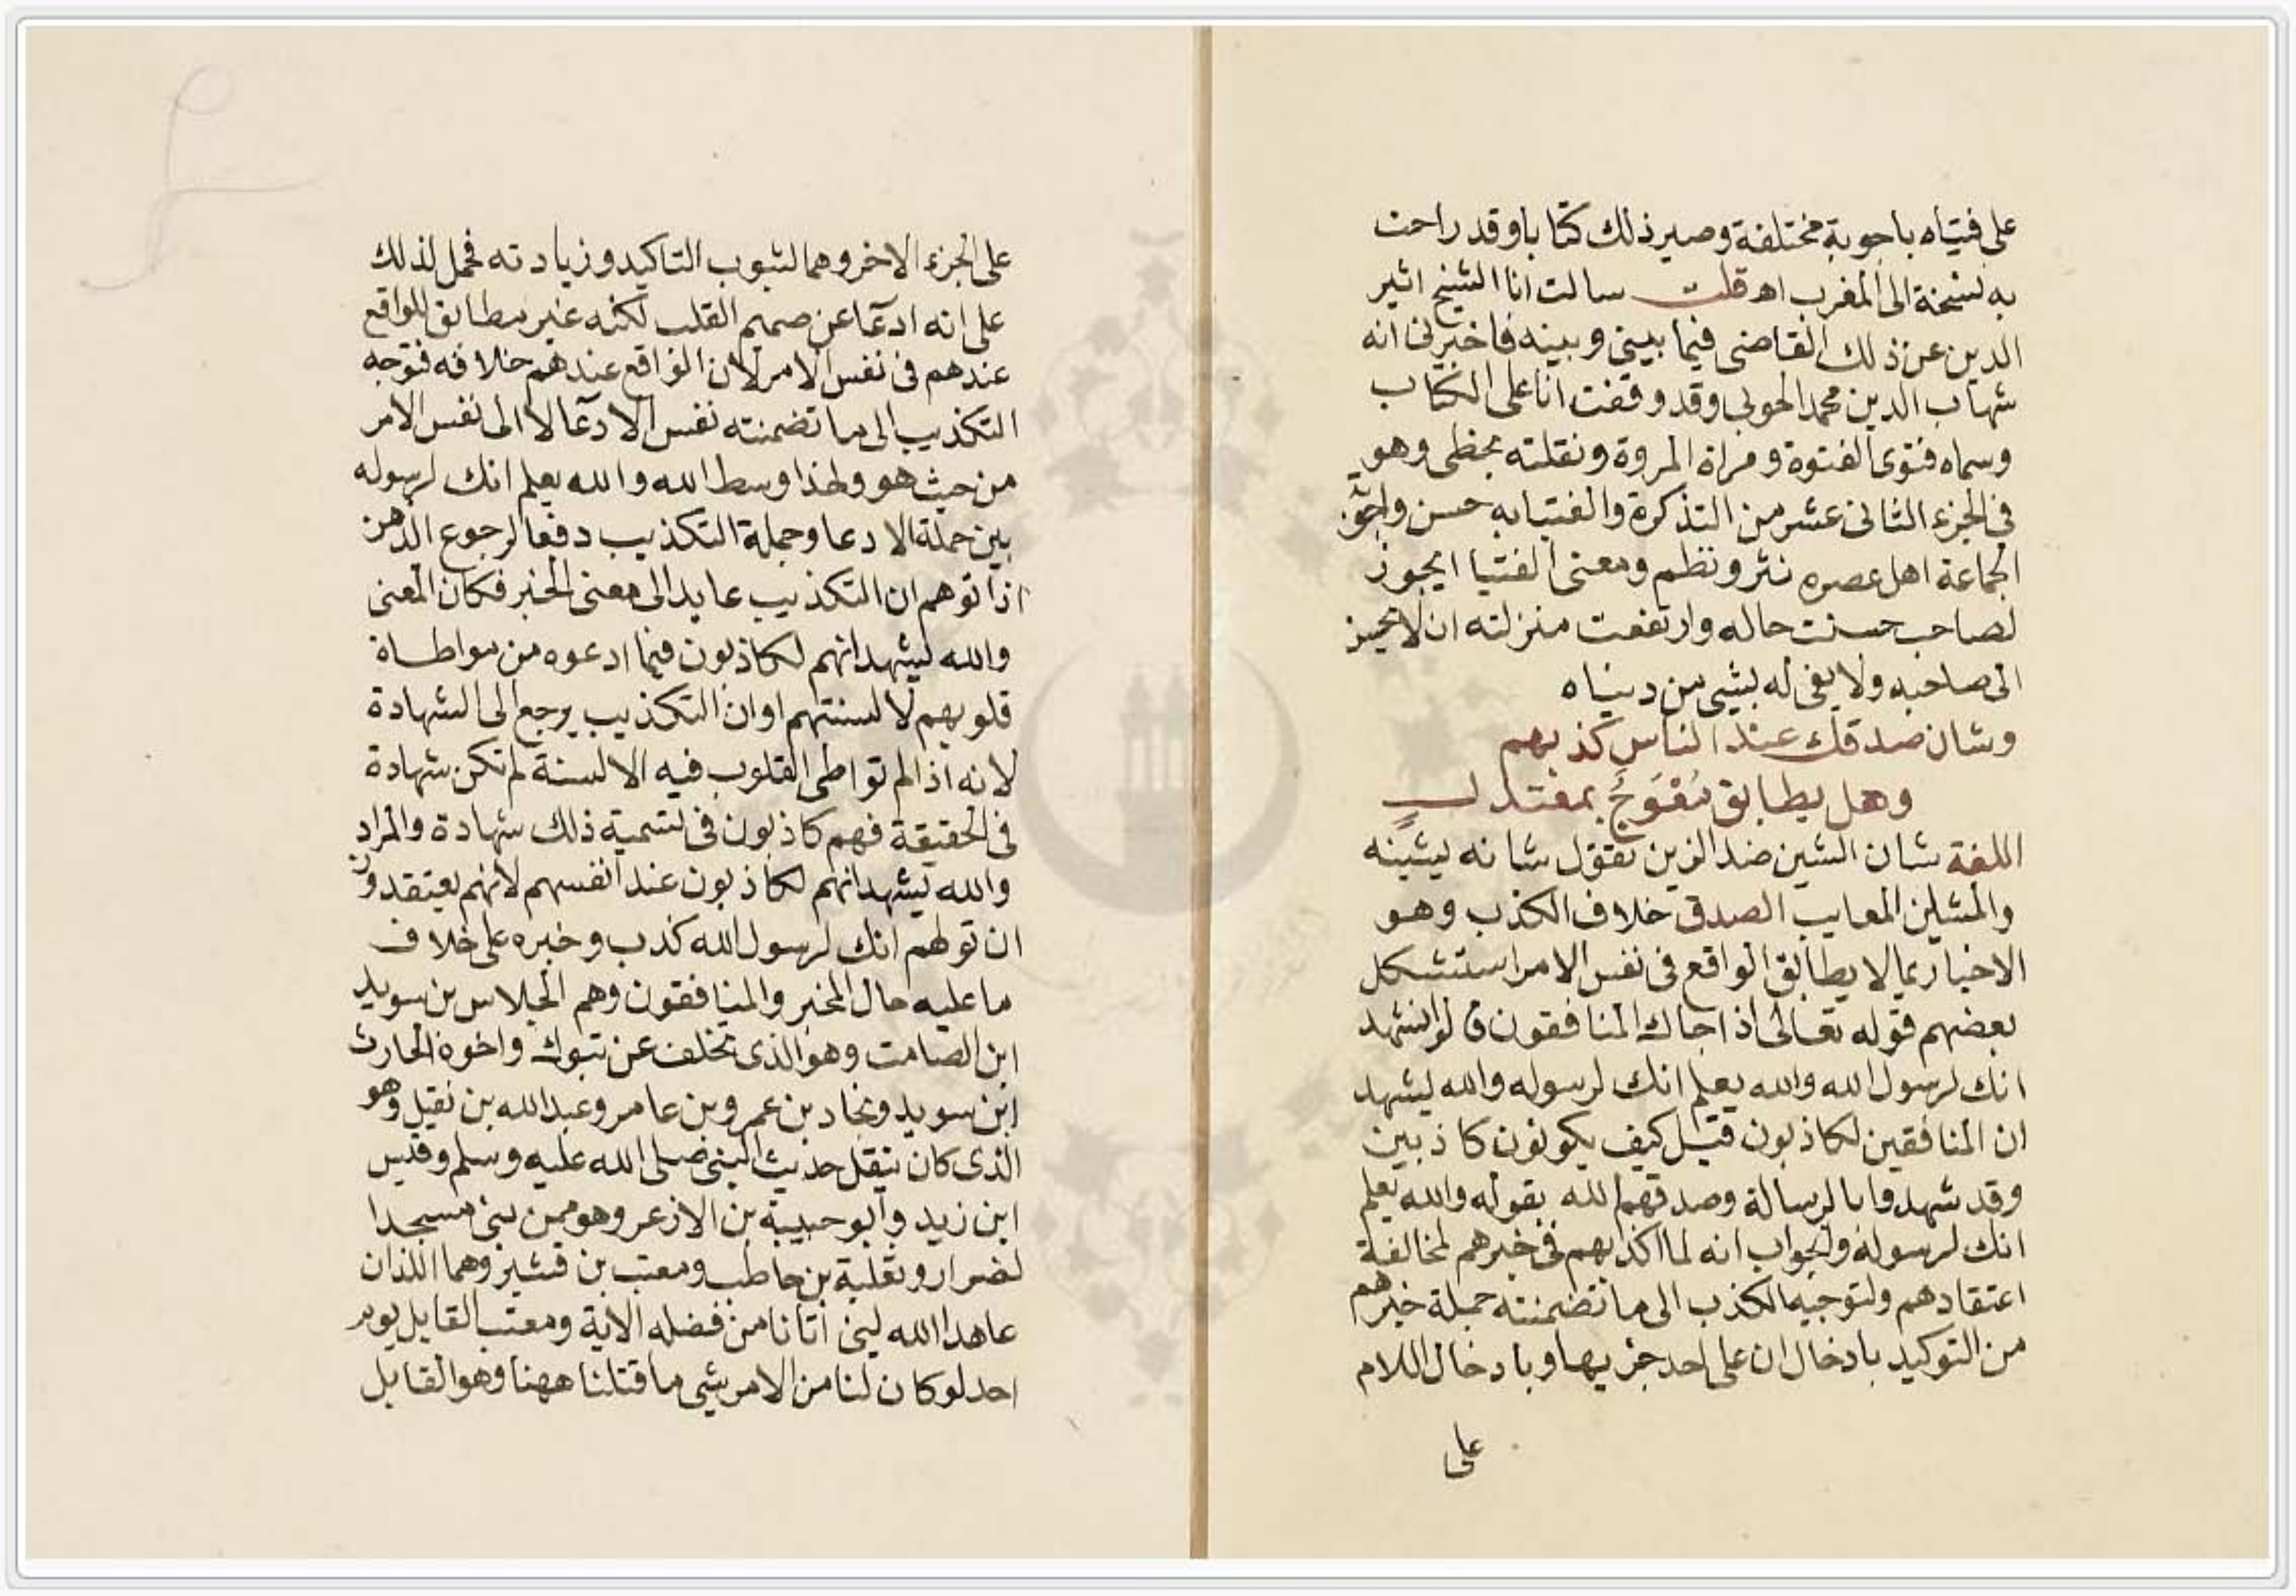 على فتياه باجوبة مختلفة وصير ذلك كتابا وقد راحت
به نسخة الى المغرب اهـ قلت سالت انا الشيخ اثير
الدين عن ذلك القاضى فيما بينى وبينه فاخبرنى انه
شهاب الدين محمد الخوبى وقد وقفت انا على الكتاب
وسماه فتوى الفتوة ومراة المروة ونقلته بخطى وهو
فى الجزء الثانى عشر من التذكرة والفتيا به حسن واجوبة
الجماعة اهل عصره نثر ونظم ومعنى الفتيا ايجوز
لصاحب حسنت حاله وارتفعت منزلته ان لا يحسن
الى صاحبه ولا يفى له بشى من دنياه
وشان صدقك عند الناس كذبهم
وهل يطابق مُعْوَجٌّ بمعتدلٍ
اللغة شان الشين ضد الزين تقول شانه يشينه
والمشاين المعايب الصدق خلاف الكذب وهو
الاخبار بما لا يطابق الواقع فى نفس الامر استشكل
بعضهم قوله تعالى اذا جاك المنافقون قالوا نشهد
انك لرسول الله والله يعلم انك لرسوله والله يشهد
ان المنافقين لكاذبون قيل كيف يكونون كاذبين
وقد شهدوا بالرسالة وصدقهم الله بقوله والله يعلم
انك لرسوله والجواب انه لما اكذبهم فى خبرهم لمخالفة
اعتقادهم ولتوجيه الكذب الى ما تضمنته جملة خبرهم
من التوكيد بادخال ان على احد جزيها وبادخال اللام
على
على الجزء الاخر وهما لشوب التاكيد وزيادته فحمل لذلك
على انه ادعا عن صميم القلب لكنه غير مطابق للواقع
عندهم فى نفس الامر لان الواقع عندهم خلافه فتوجه
التكذيب الى ما تضمنته نفس الادعا لا الى نفس الامر
من حيث هو ولهذا وسط الله والله يعلم انك لرسوله
بين جملة الادعا وجملة التكذيب دفعا لرجوع الذهن
اذا توهم ان التكذيب عايد الى معنى الخبر فكان المعنى
والله يشهد انهم لكاذبون فيما ادعوه من مواطاة
قلوبهم لالسنتهم او ان التكذيب يرجع الى الشهادة
لانه اذا لم تواطى القلوب فيه الالسنة لم تكن شهادة
فى الحقيقة فهم كاذبون فى تسمية ذلك شهادة والمراد
والله يشهد انهم لكاذبون عند انفسهم لانهم يعتقدون
ان قولهم انك لرسول الله كذب وخبره على خلاف
ما عليه حال المخبر والمنافقون وهم الجلاس بن سويد
ابن الصامت وهو الذى تخلف عن تبوك واخوه الحارث
ابن سويد ونجاد بن عمرو بن عامر وعبد الله بن نفيل وهو
الذى كان ينقل حديث النبى صلى الله عليه وسلم وقيس
ابن زيد وابو حبيبة بن الازعر وهو ممن بنى مسجدا
لضرار وثعلبة بن حاطب ومعتب بن قشير وهما اللذان
عاهدا الله لين اتانا من فضله الاية ومعتب القايل يوم
احد لو كان لنا من الامر شى ما قتلنا ههنا وهو القايل